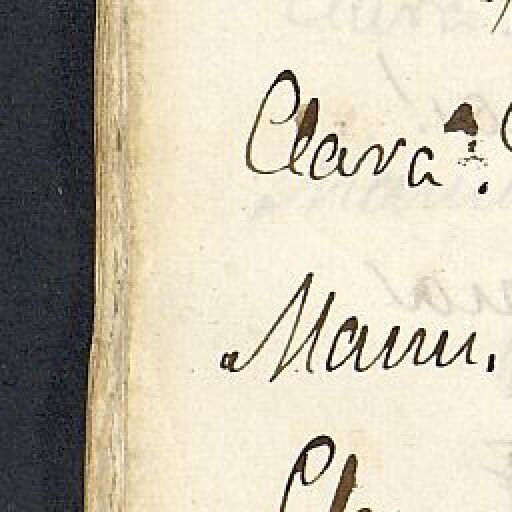 Clara.
Mann.
Cla